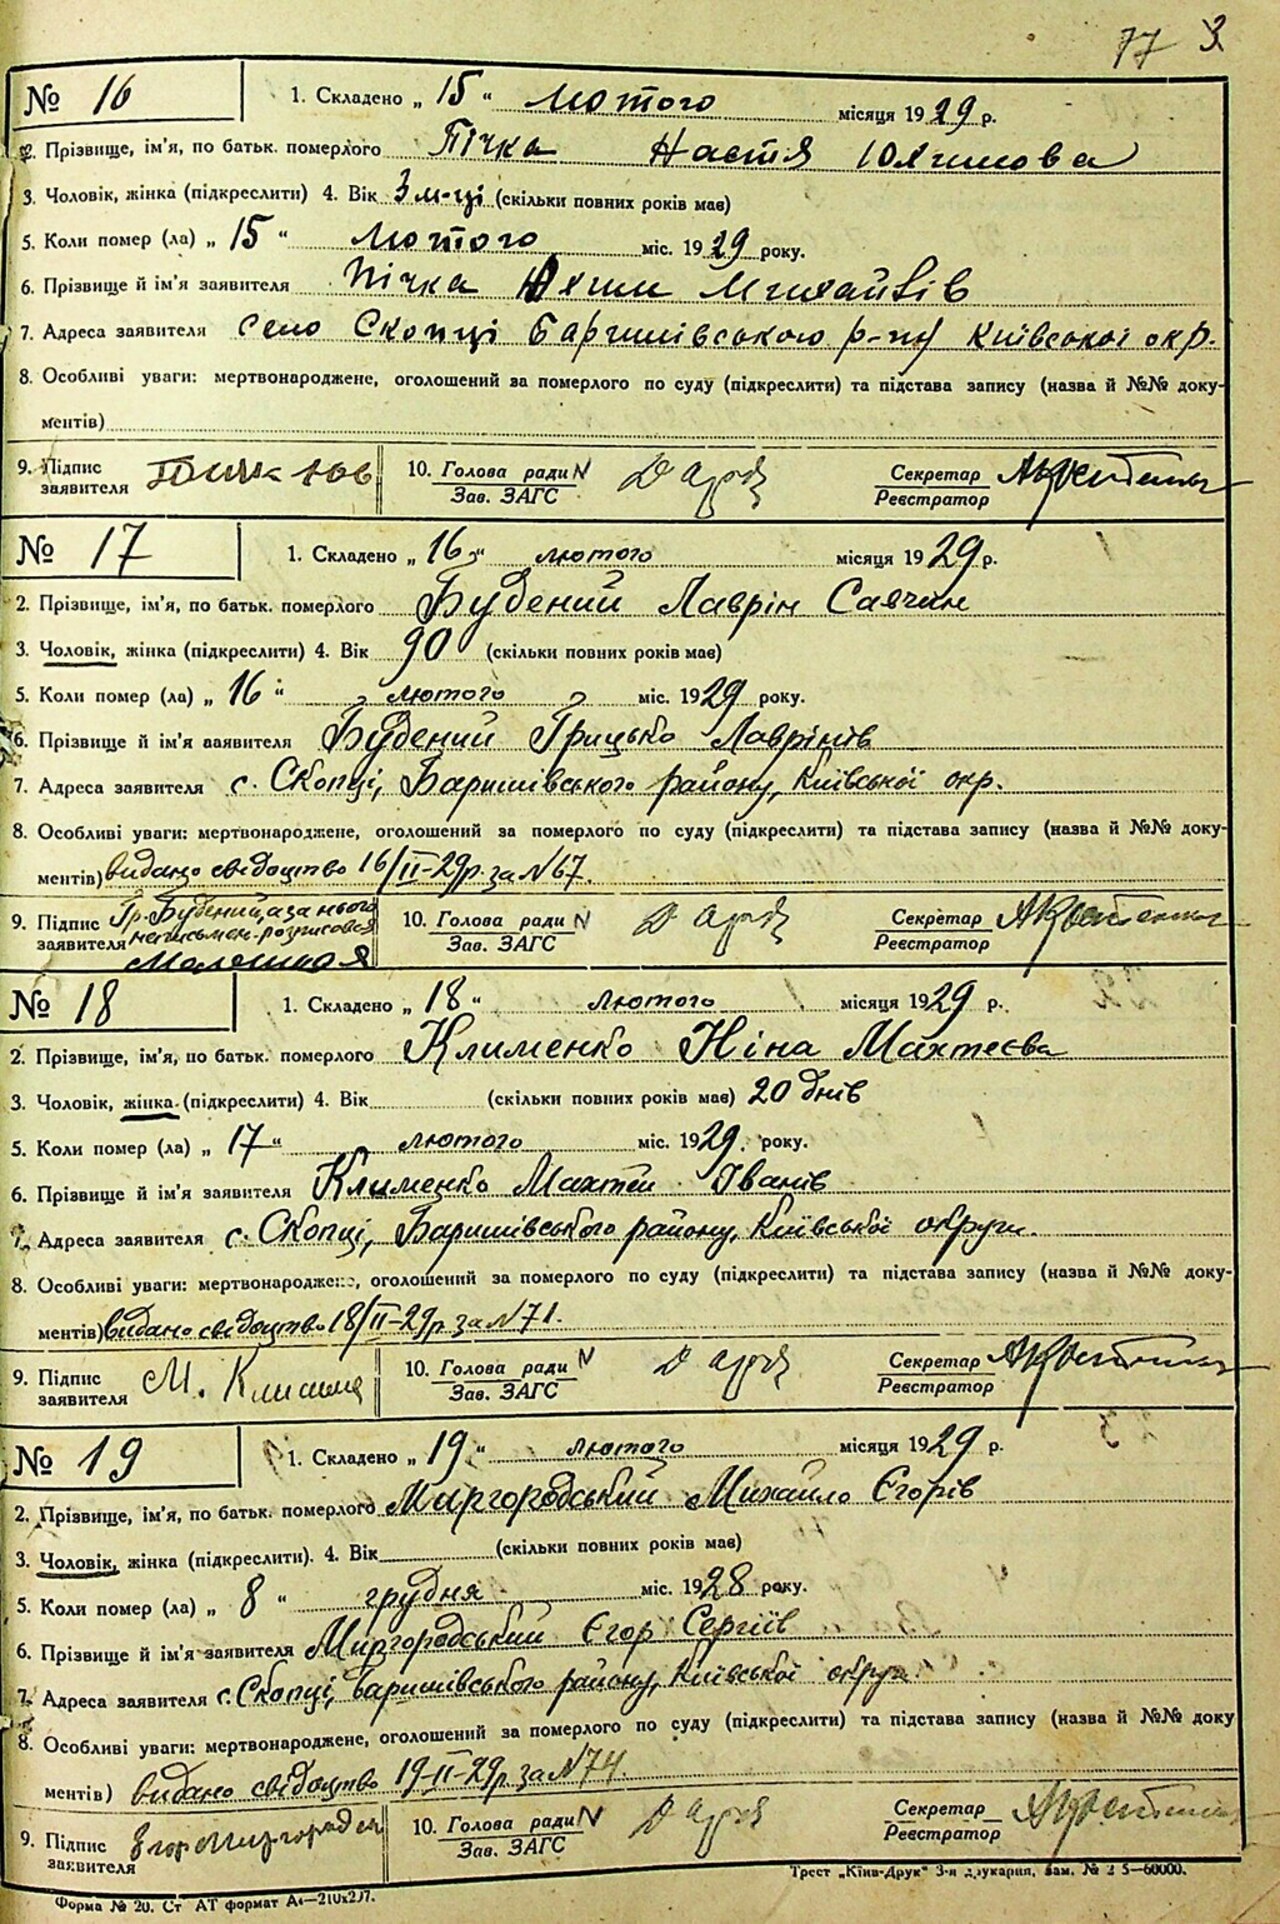 77 3
№ 16 1. Складено „ 15 “ лютого місяця 1929 р.
2. Прізвище, ім'я, по батьк. померлого Пічка Настя Юхимова
3. Чоловік, жінка (підкреслити) 4. Вік 3 м-ці (скільки повних років має)
5. Коли помер (ла) „ 15 “ лютого міс. 1929 року.
6. Прізвище й ім'я заявителя Пічка Юхим Михайлів
7. Адреса заявителя село Скопці Баришівського р-ну Київської окр.
8. Особливі уваги: мертвонароджене, оголошений за померлого по суду (підкреслити) та підстава запису (назва й №№ доку-
ментів)
9. Підпис заявителя 10. Голова ради Зав. ЗАГС Секретар Реєстратор
№ 17 1. Складено „ 16 “ лютого місяця 1929 р.
2. Прізвище, ім'я, по батьк. померлого Будений Лаврін Савчин
3. Чоловік, жінка (підкреслити) 4. Вік 90 (скільки повних років має)
5. Коли помер (ла) „ 16 “ лютого міс. 1929 року.
6. Прізвище й ім'я заявителя Будений Грицько Лаврінів
7. Адреса заявителя с. Скопці, Баришівського району, Київської окр.
8. Особливі уваги: мертвонароджене, оголошений за померлого по суду (підкреслити) та підстава запису (назва й №№ доку-
ментів) видано свідоцтво 16/II-29р. за N 67.
9. Підпис заявителя Гр. Будений, а за нього неписьмен. розписався 10. Голова ради Зав. ЗАГС Секретар Реєстратор
№ 18 1. Складено „ 18 “ лютого місяця 1929 р.
2. Прізвище, ім'я, по батьк. померлого Клименко Ніна Махтеєва
3. Чоловік, жінка (підкреслити) 4. Вік (скільки повних років має) 20 днів
5. Коли помер (ла) „ 17 “ лютого міс. 1929. року.
6. Прізвище й ім'я заявителя Клименко Махтей Іванів
7. Адреса заявителя с. Скопці, Баришівського району, Київської округи.
8. Особливі уваги: мертвонароджене, оголошений за померлого по суду (підкреслити) та підстава запису (назва й №№ доку-
ментів) видано свідоцтво 18/II-29р. за N 71.
9. Підпис заявителя М. 10. Голова ради Зав. ЗАГС Секретар Реєстратор
№ 19 1. Складено „ 19 “ лютого місяця 1929 р.
2. Прізвище, ім'я, по батьк. померлого Миргородський Михайло Єгорів
3. Чоловік, жінка (підкреслити). 4. Вік (скільки повних років має)
5. Коли помер (ла) „ 8 “ грудня міс. 1928 року.
6. Прізвище й ім'я заявителя Миргородський Єгор Сергіїв
7. Адреса заявителя с. Скопці, Баришівського району, Київської округи.
8. Особливі уваги: мертвонароджене, оголошений за померлого по суду (підкреслити) та підстава запису (назва й №№ доку
ментів) видано свідоцтво 19-II-29р. за N 74.
9. Підпис заявителя 10. Голова ради Зав. ЗАГС Секретар Реєстратор
Форма № 20. Ст АТ формат А4—210х297. Трест „Київ-Друк“ 3-я друкарня, Зам. № 60000.